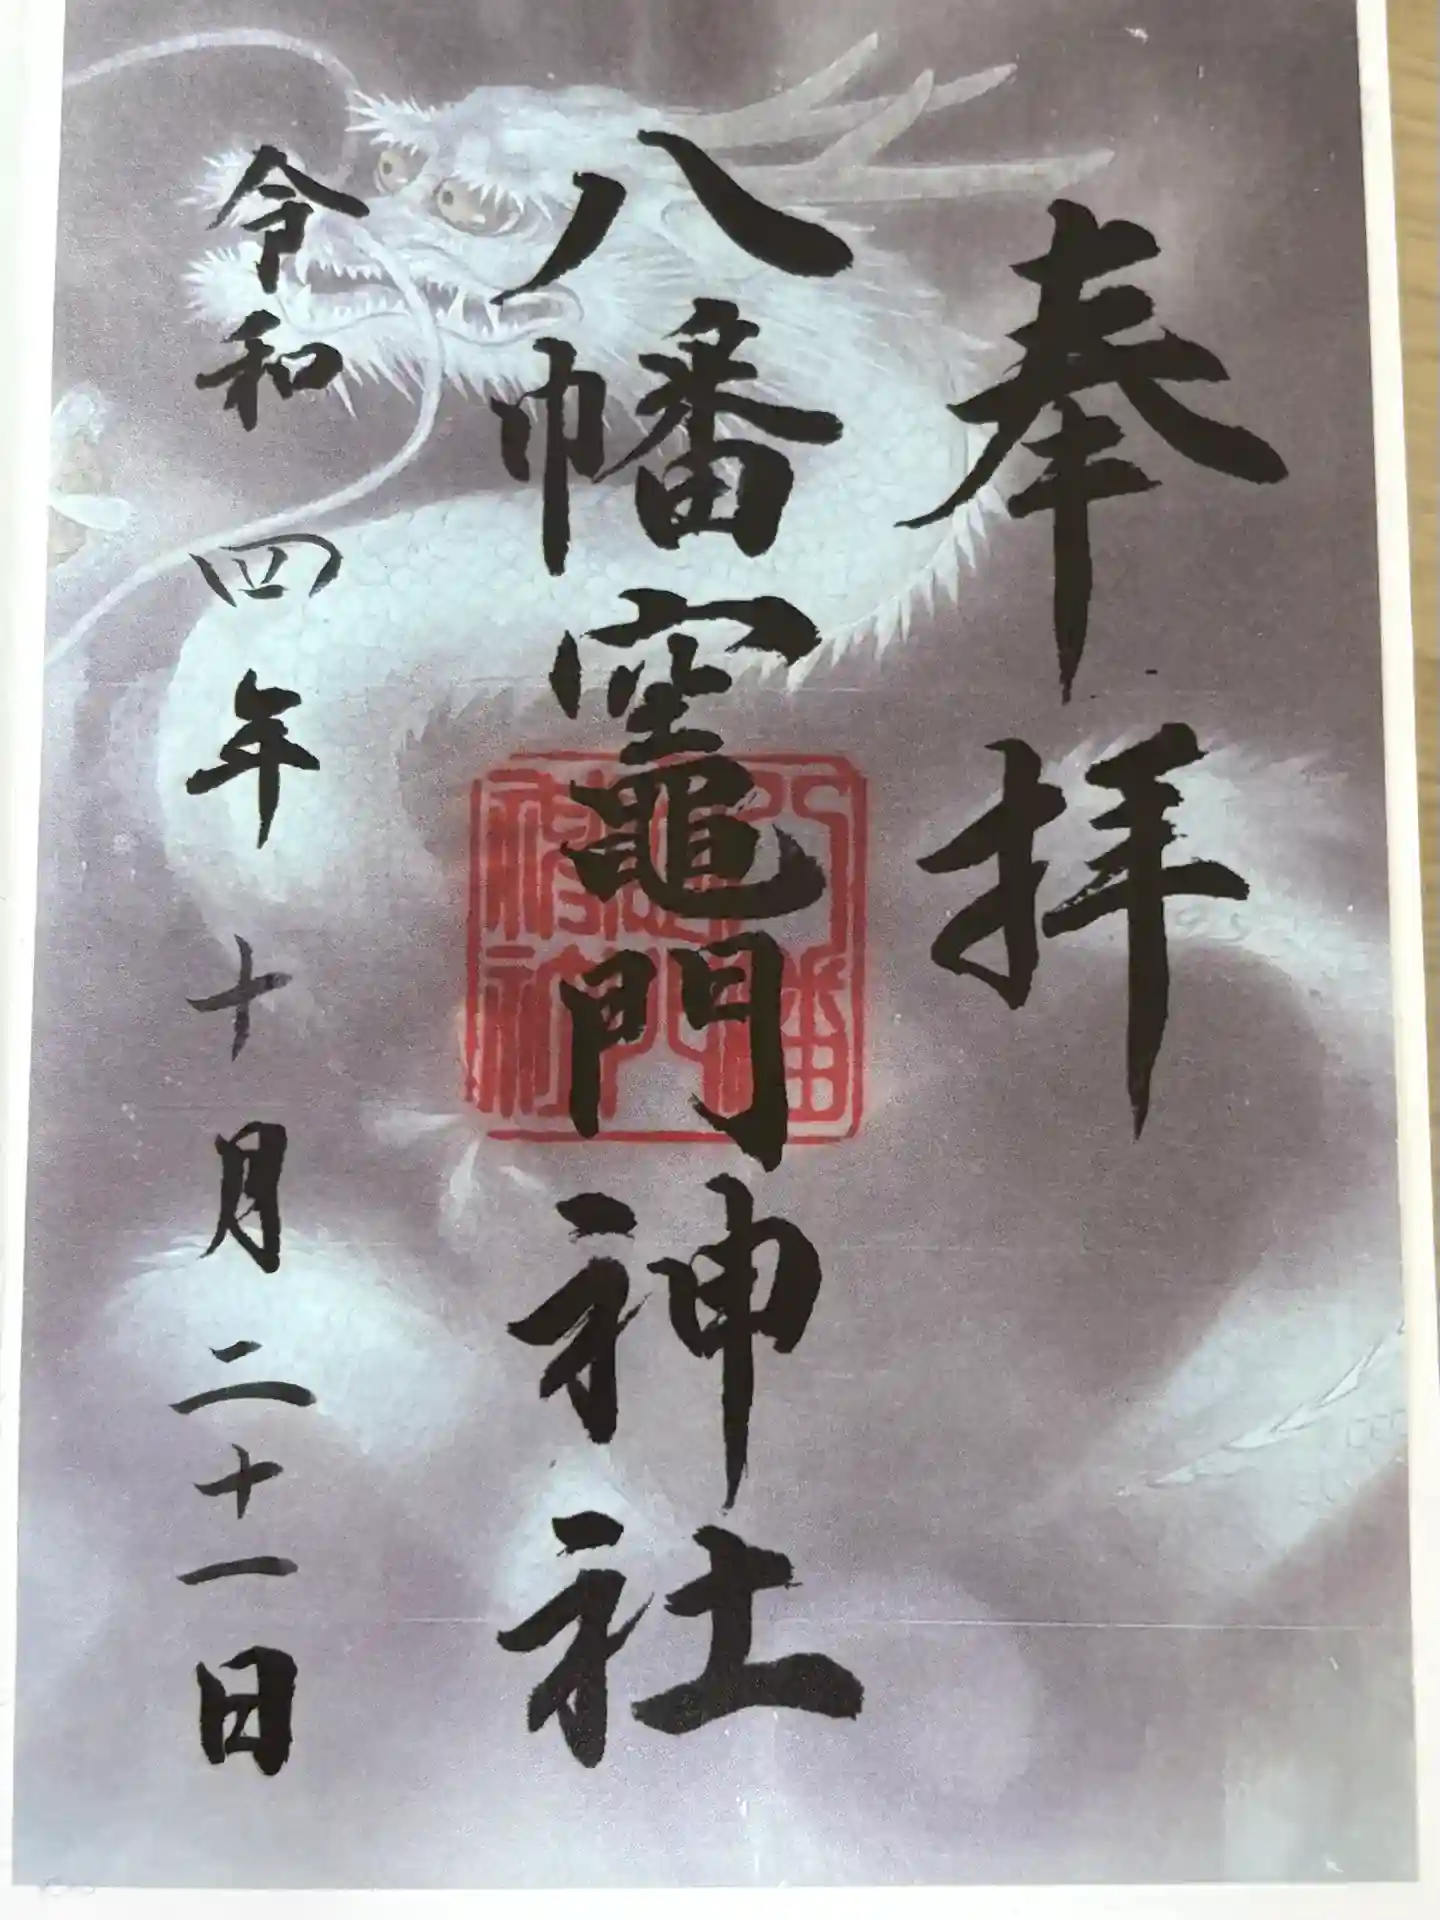 奉拝
八幡竈門神社
令和四年十月二十一日